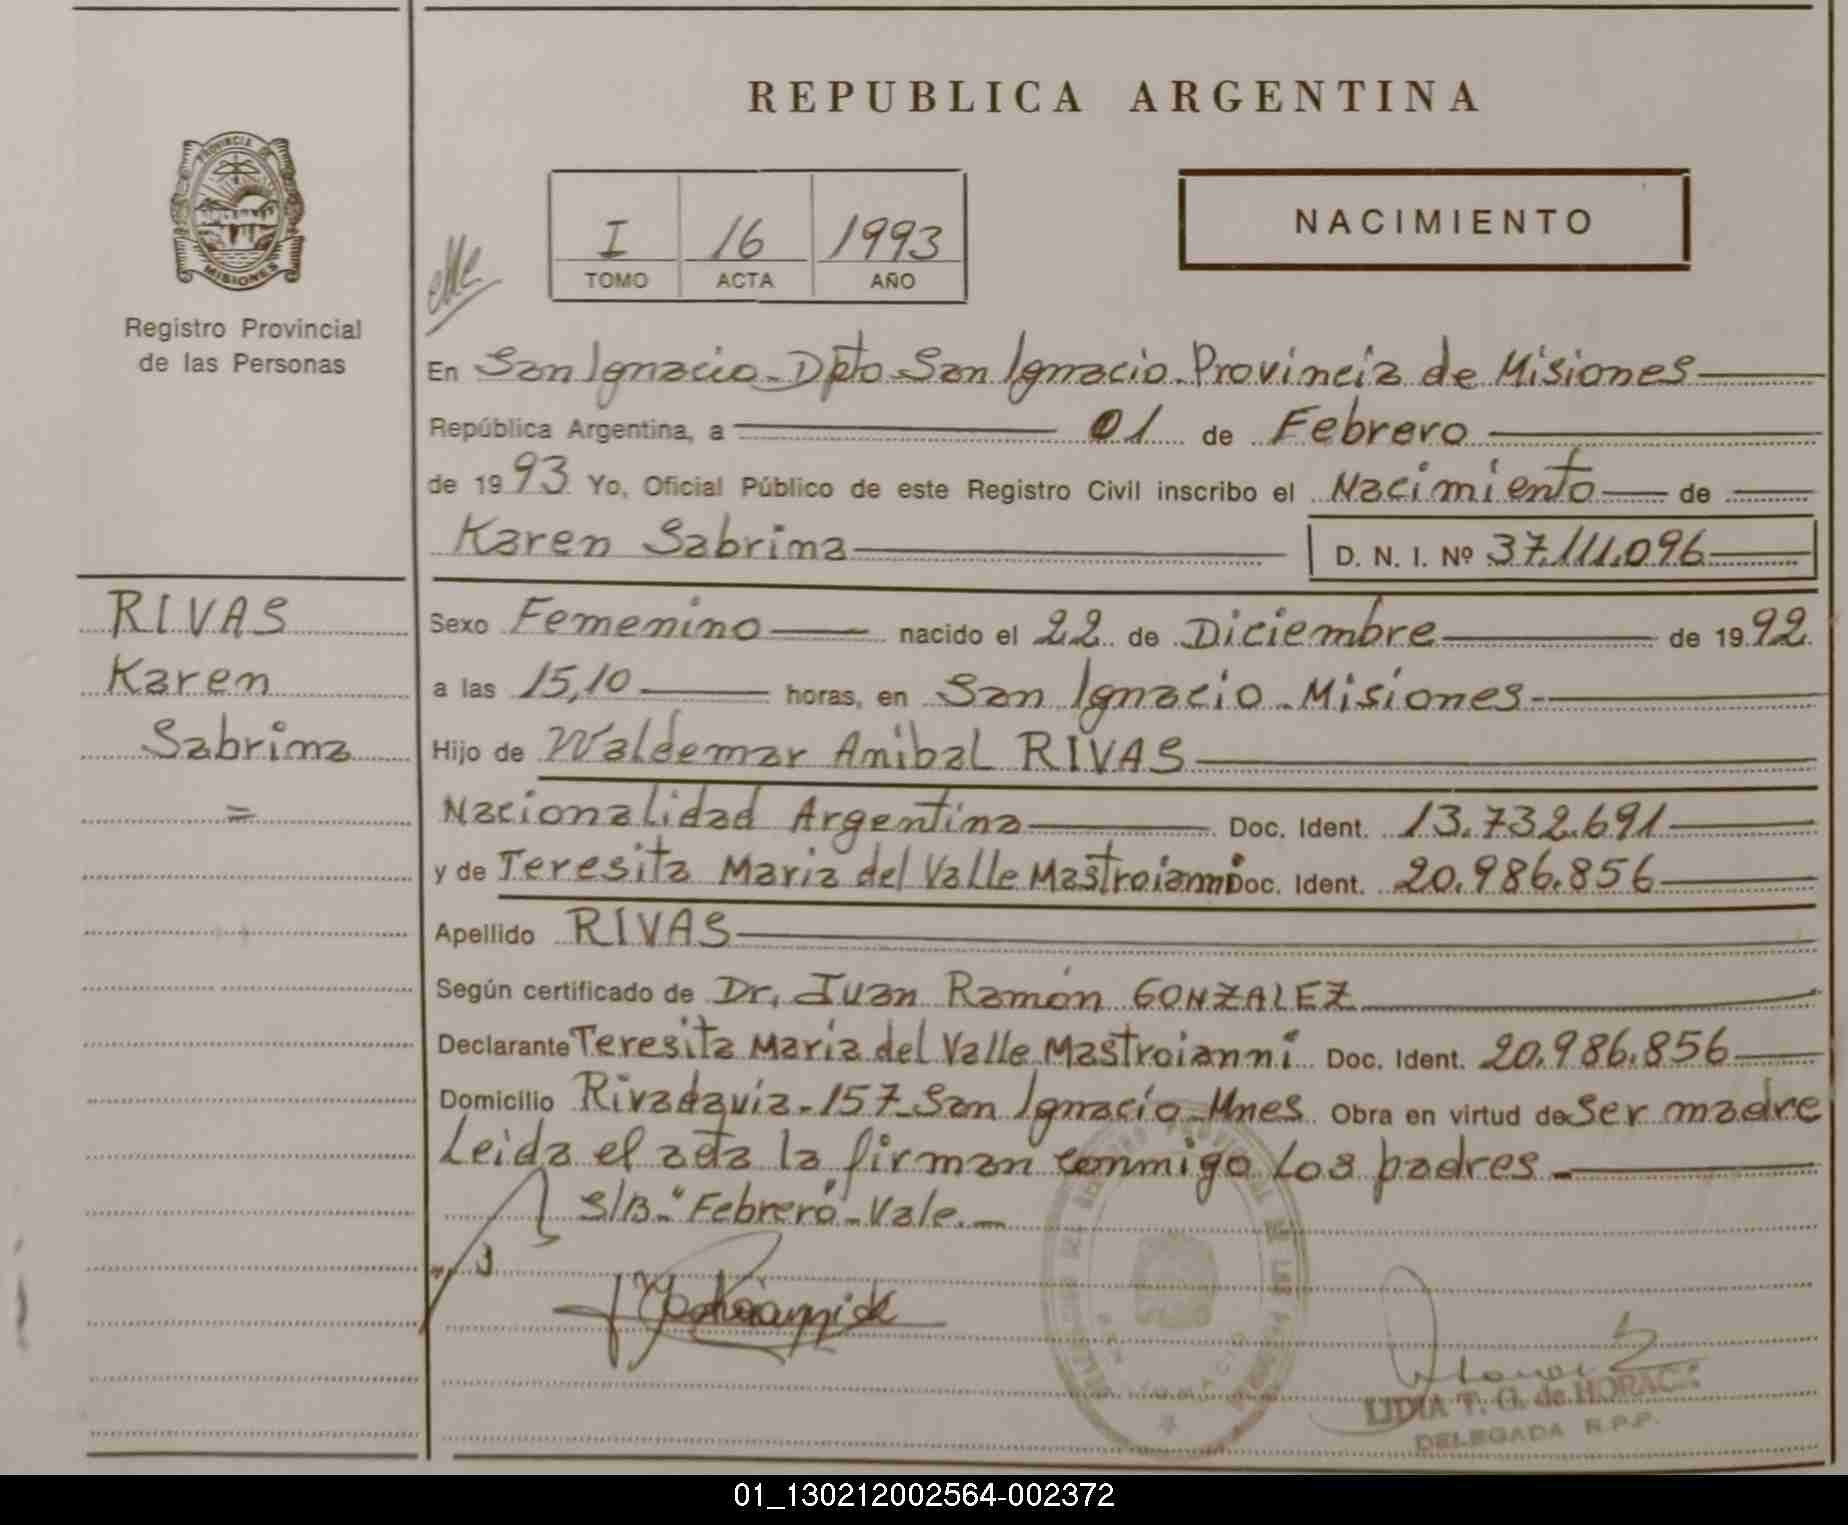 REPUBLICA ARGENTINA
PROVINCIA DE
MISIONES
Registro Provincial
de las Personas
I 16 1993
TOMO ACTA AÑO
NACIMIENTO
En San Ignacio - Dpto San Ignacio - Provincia de Misiones
República Argentina, a 01 de Febrero
de 1993 Yo, Oficial Público de este Registro Civil inscribo el Nacimiento de
Karen Sabrina D. N. I. Nº 37.111.096
RIVAS
Karen
Sabrina
=
Sexo Femenino nacido el 22 de Diciembre de 1992.
a las 15,10 horas, en San Ignacio - Misiones -
Hijo de Waldemar Anibal RIVAS
Nacionalidad Argentina Doc. Ident. 13.732.691
y de Teresita Maria del Valle Mastroianni Doc. Ident. 20.986.856
Apellido RIVAS
Según certificado de Dr. Juan Ramón GONZALEZ
Declarante Teresita Maria del Valle Mastroianni Doc. Ident. 20.986.856
Domicilio Rivadavia - 157 - San Ignacio - Mnes. Obra en virtud de Ser madre
Leida el acta la firman conmigo Los padres -
S/B - "Febrero" - Vale. -
LIDIA T. G. de
DELEGADA R.P.P.
01_130212002564-002372